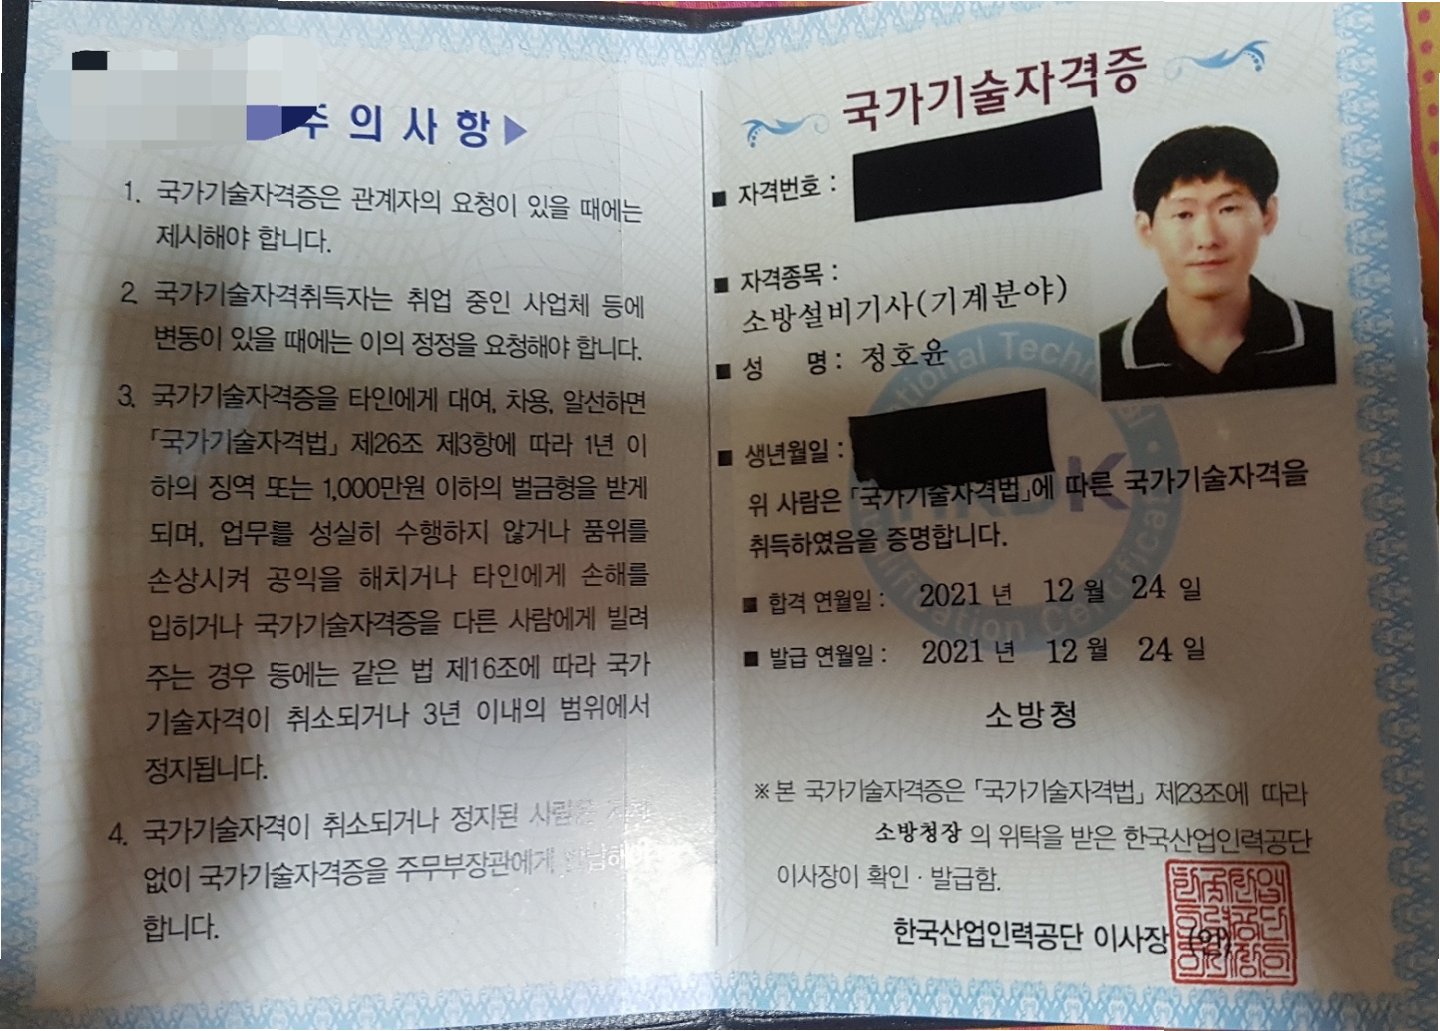 주 의 사 항 ▶
1. 국가기술자격증은 관계자의 요청이 있을 때에는
제시해야 합니다.
2. 국가기술자격취득자는 취업 중인 사업체 등에
변동이 있을 때에는 이의 정정을 요청해야 합니다.
3. 국가기술자격증을 타인에게 대여, 차용, 알선하면
「국가기술자격법」 제26조 제3항에 따라 1년 이
하의 징역 또는 1,000만원 이하의 벌금형을 받게
되며, 업무를 성실히 수행하지 않거나 품위를
손상시켜 공익을 해치거나 타인에게 손해를
입히거나 국가기술자격증을 다른 사람에게 빌려
주는 경우 등에는 같은 법 제16조에 따라 국가
기술자격이 취소되거나 3년 이내의 범위에서
정지됩니다.
4. 국가기술자격이 취소되거나 정지된 사람은
없이 국가기술자격증을 주무부장관에게
합니다.
국가기술자격증
■ 자격번호 :
■ 자격종목 :
소방설비기사(기계분야)
■ 성 명 : 정호윤
■ 생년월일 :
위 사람은 「국가기술자격법」에 따른 국가기술자격을
취득하였음을 증명합니다.
■ 합격 연월일 : 2021 년 12 월 24 일
■ 발급 연월일 : 2021 년 12 월 24 일
소방청
※ 본 국가기술자격증은 「국가기술자격법」 제23조에 따라
소방청장 의 위탁을 받은 한국산업인력공단
이사장이 확인 · 발급함.
한국산업인력공단 이사장 (인)